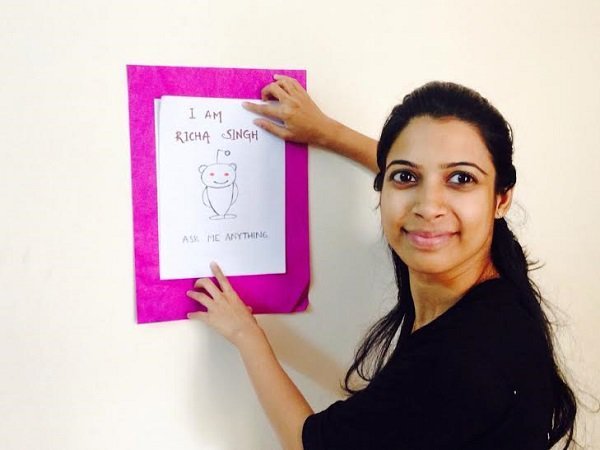 I AM
RICHA SINGH
ASK ME ANYTHING